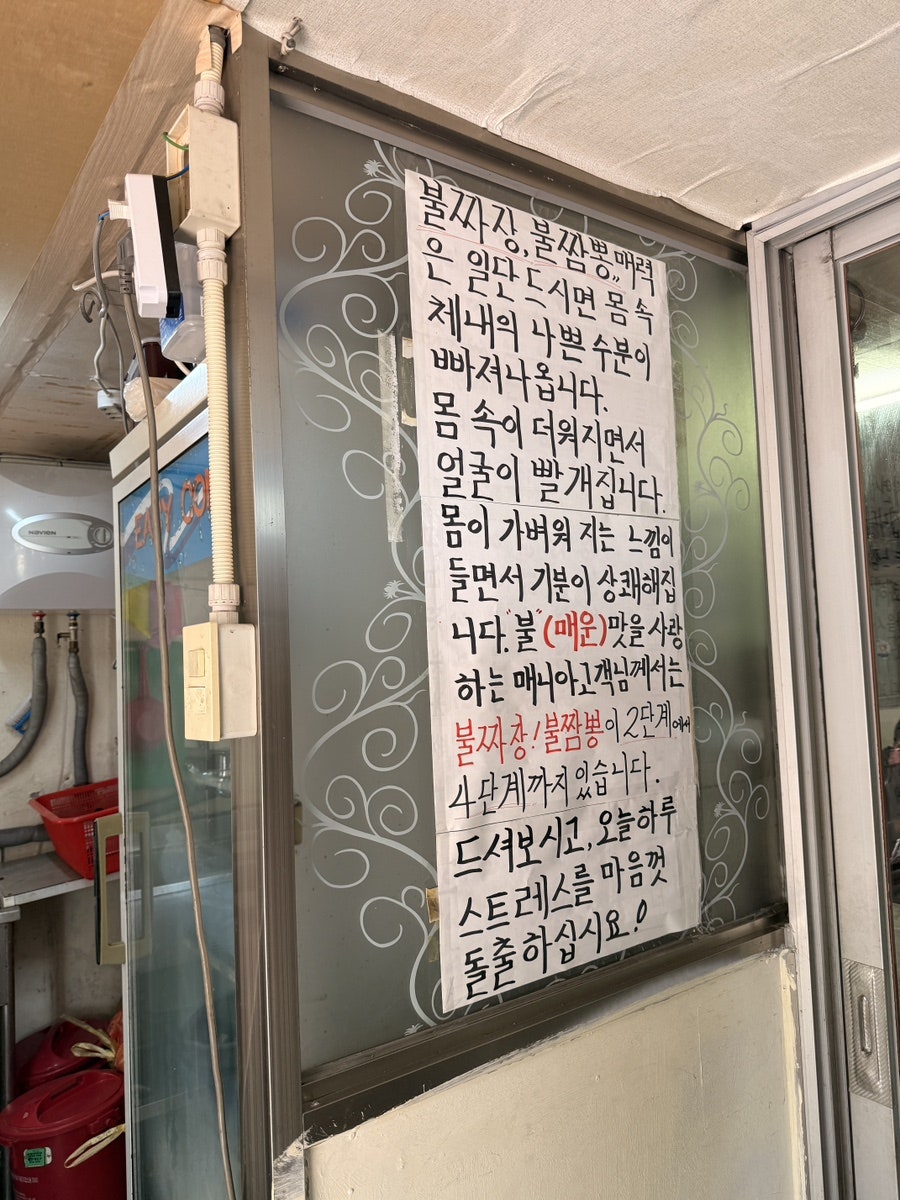 불짜장, 불짬뽕,, 매력
은 일단 드시면 몸 속
체내의 나쁜 수분이
빠져나옵니다.
몸 속이 더워지면서
얼굴이 빨개집니다.
몸이 가벼워 지는 느낌이
들면서 기분이 상쾌해집
니다. "불" (매운) 맛을 사랑
하는 매니아고객님께서는
불짜장! 불짬뽕이 2단계에서
4단계까지 있습니다.
드셔보시고, 오늘하루
스트레스를 마음껏
돌출하십시요!
NAVIEN